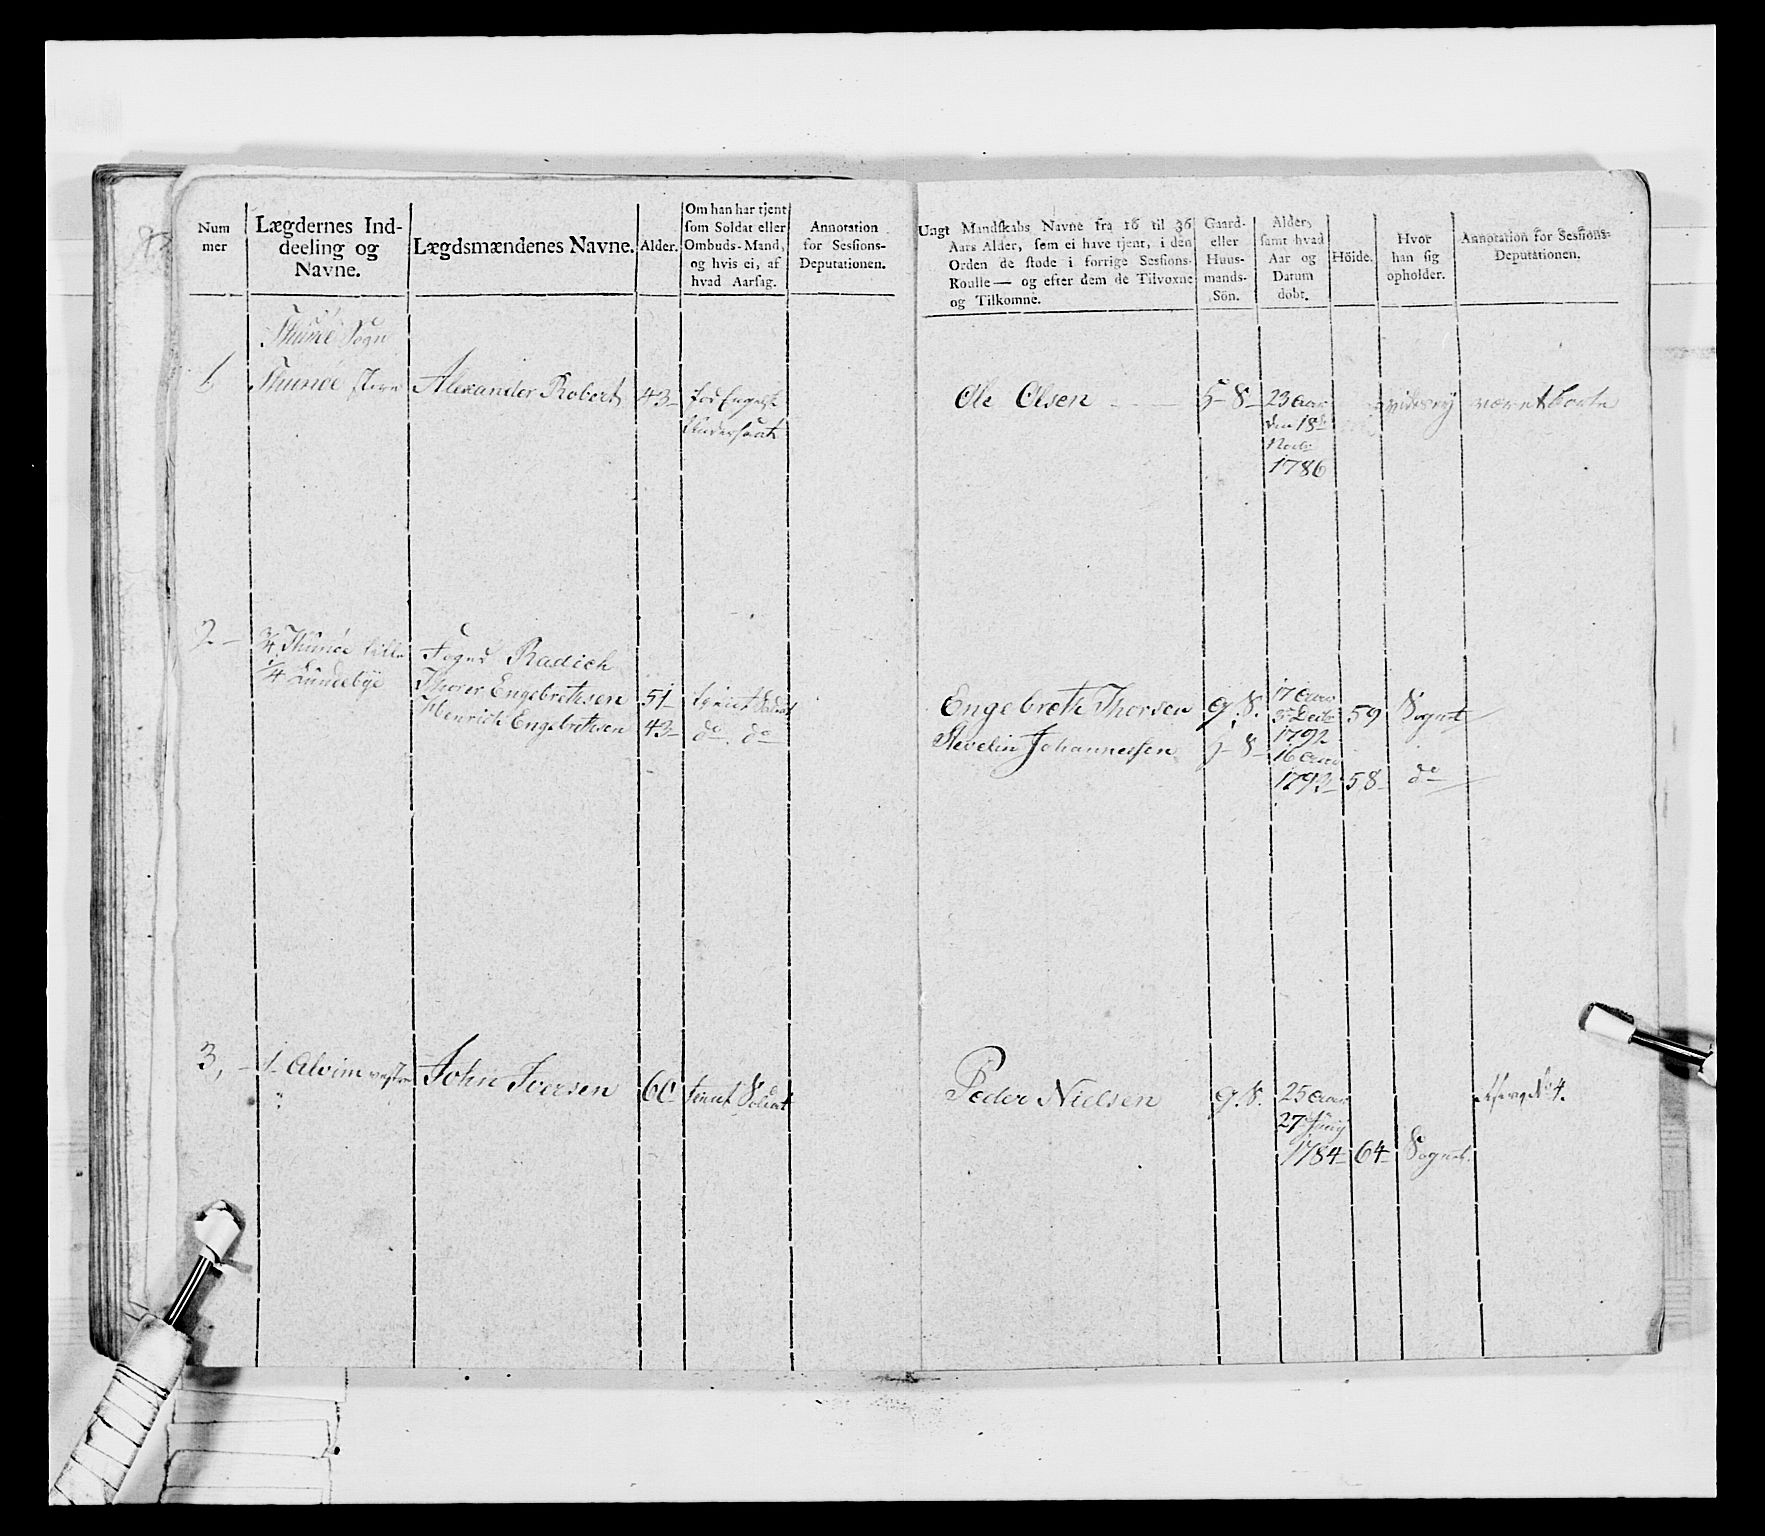 Num
mer
Lægdernes Ind-
deeling og
Navne.
Lægdsmændenes Navne.
Alder.
Om han har tjent
som Soldat eller
Ombuds-Mand,
og hvis ei, af
hvad Aarsag.
Annotation
for Sessions-
Deputationen.
Ungt Mandskabs Navne fra 16 til 36
Aars Alder, som ei have tjent, i den
Orden de stode i forrige Sessions-
Roulle — og efter dem de Tilvoxne
og Tilkomne.
Gaard-
eller
Huus-
mands-
Sön.
Alder,
samt hvad
Aar og
Datum
dobt.
Höide.
Hvor
han sig
opholder.
Annotation for Sessions-
Deputationen.
Thunöe Sogn
1 Thunöe store Alexander Robert 43- Engelsk
Undersaat
Ole Olsen 23 Aar
den 18de
1786
2- 3/4 Thunöe lille Radich
1/4 Lundebye Thorer Engebrethsen 51- tjent Soldat
Henrich Engebrethsen 43- do do
Engebreth Thorsen g. S. 17 Aar
5 Decbr 59 Sognet
1792
Johannessen 16 Aar
1793- 58- do
3, - 1- Alvim vestre John Iversen 60 tient Soldat
Peder Nielsen g. S. 25 Aar No 4.
27 Juny
1784- 64- Sognet